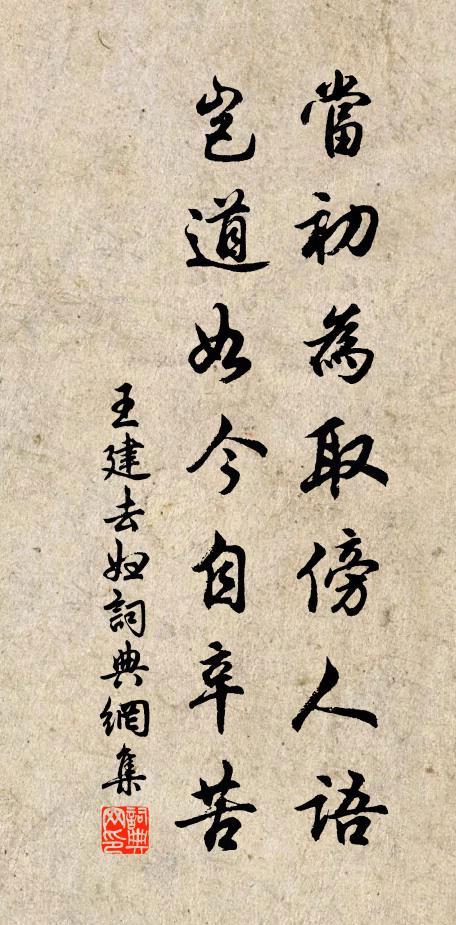 當初為取傍人語
豈道如今自辛苦
王建去妞詞典網集
詞典网印